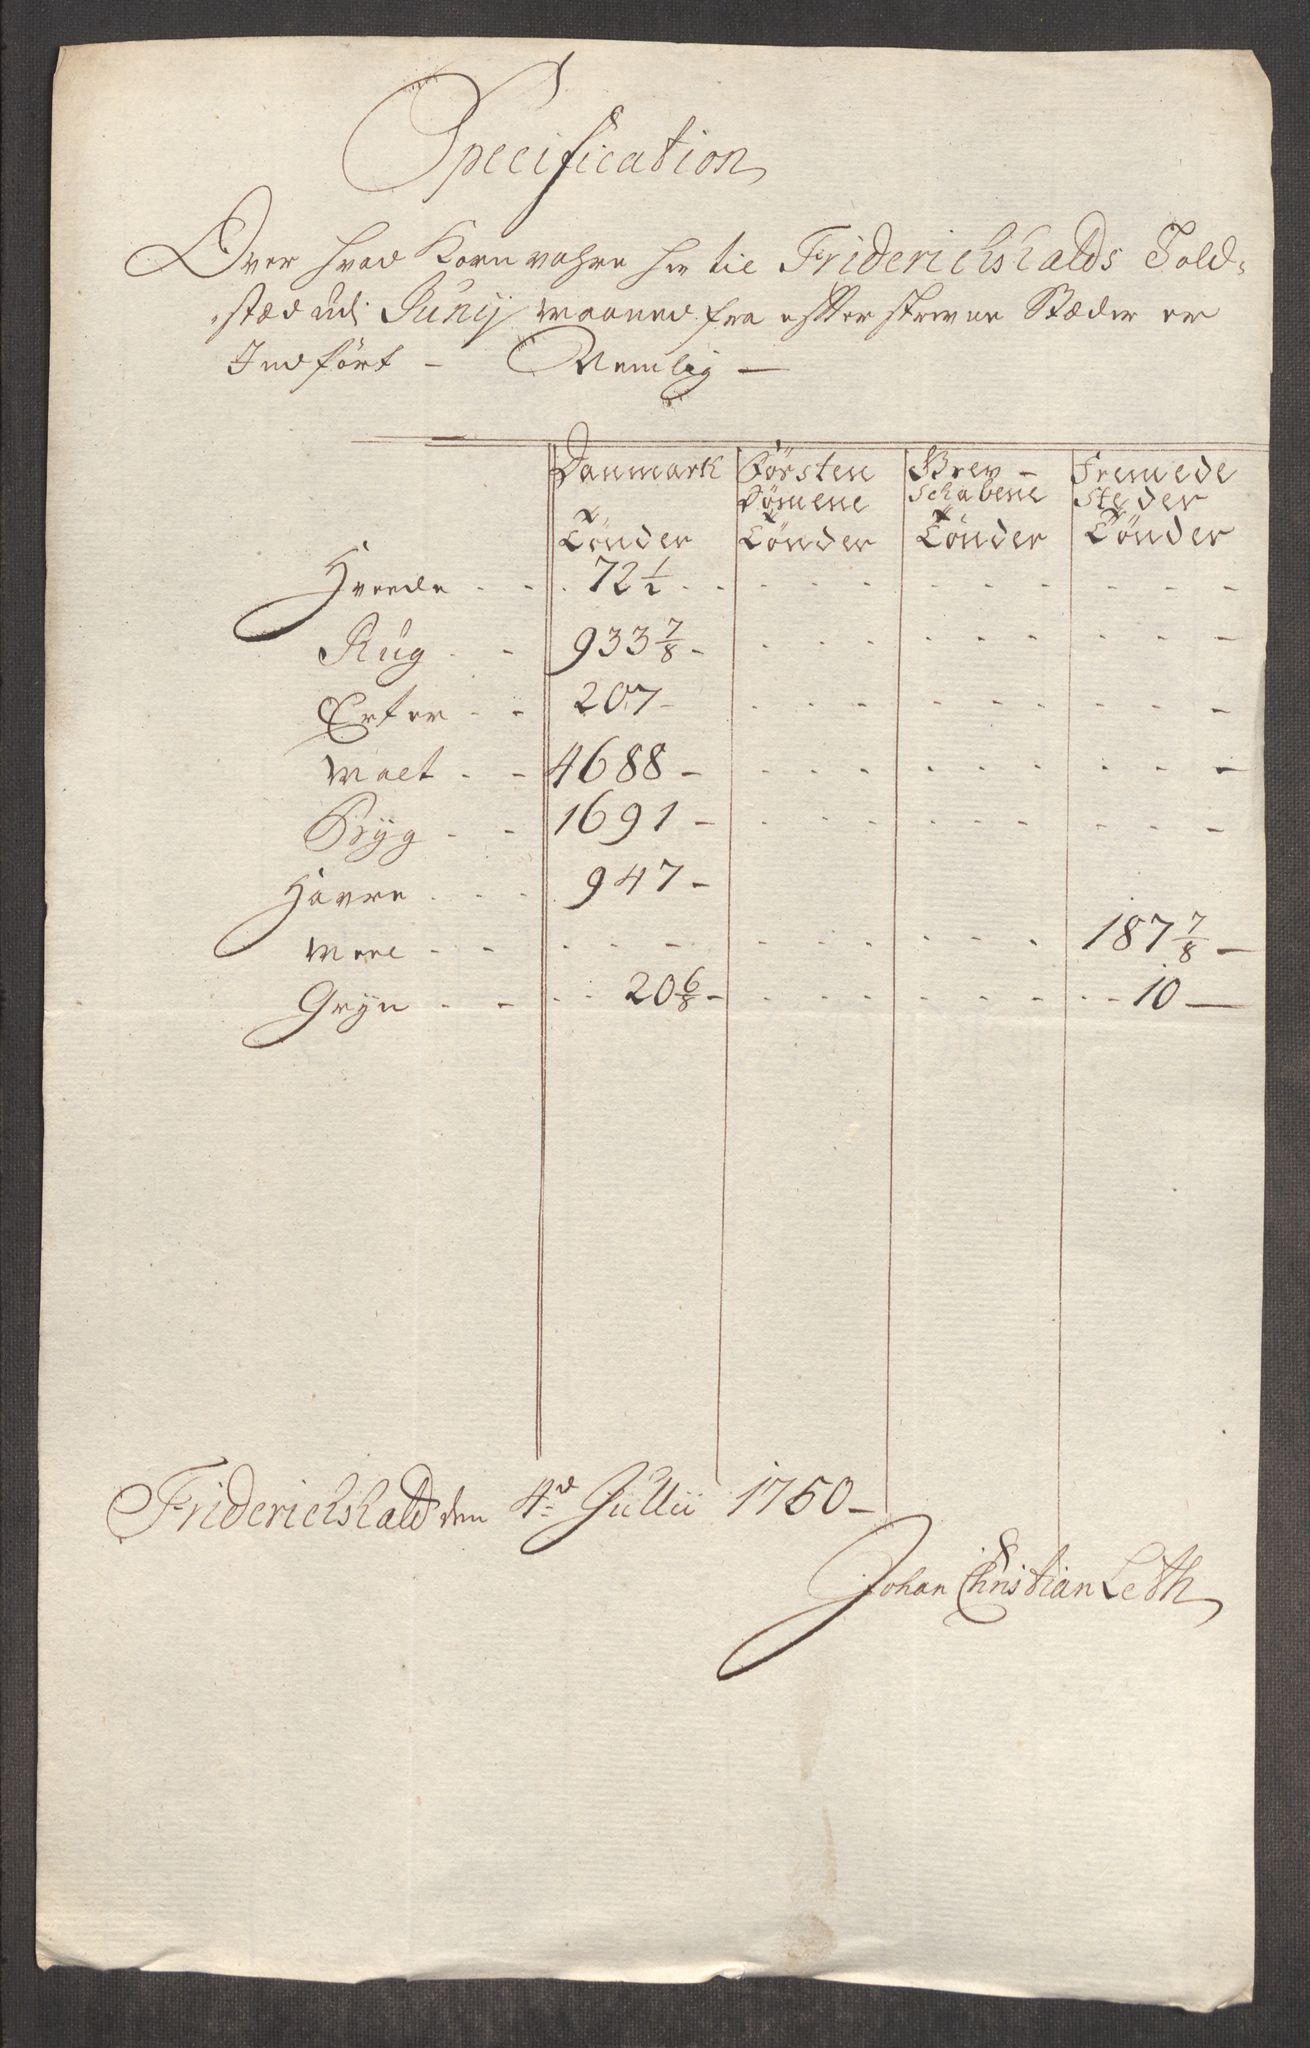 Specification
Over hvad Korn vahre her til Friderichshalds Told=
=stæd udi Junij Maaned fra efter skrevne Stæder er
Indført - Nemlig -
Danmark Førsten Grev- Fremede
Dömene Schabene Steder
Tønder Tønder Tønder Tønder
Hvede - - . 72 1/2 . . - - - - - - - - -
Rug - - 933 7/8 - - - - - - - - - -
Erter - - 207 - - - - - - - - - -
Malt - - 4688 - - - - - - - - - -
Byg - - 1691 - - - - - - - - - -
Havre - - - 947 -
Meel - - - - - - - - - - - - - 187 7/8 -
Gryn - - - - 20 6/8 - - - - - - - - - - 10 -
Friderichshald den 4de Jullii 1750 -
Johan Christian Leth